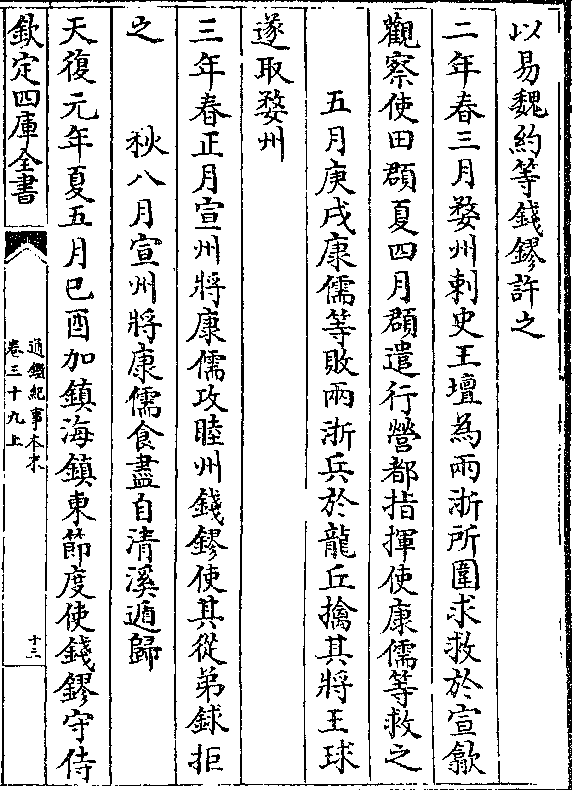 以易魏約等錢鏐許之
二年春三月婺州刺史王壇為兩浙所圍求救於宣歙
觀察使田頵夏四月頵遣行營都指揮使康儒等救之
五月庚戌康儒等敗兩浙兵於龍丘擒其將王球
遂取婺州
三年春正月宣州將康儒攻睦州錢鏐使其從弟銶拒
之　秋八月宣州將康儒食盡自清溪遁歸
天復元年夏五月已酉加鎮海鎮東節度使錢鏐守侍
欽定四庫全書
通鑑紀事本末
卷三十九上
十三